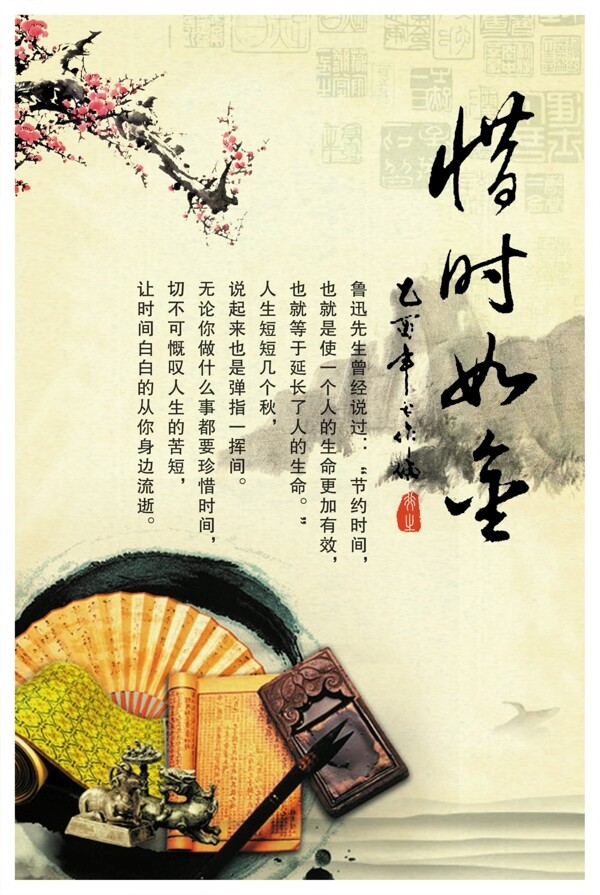 惜时如金
乙酉年
鲁迅先生曾经说过：“节约时间，
也就是使一个人的生命更加有效，
也就等于延长了人的生命。”
人生短短几个秋，
说起来也是弹指一挥间。
无论你做什么事都要珍惜时间，
切不可慨叹人生的苦短，
让时间白白的从你身边流逝。